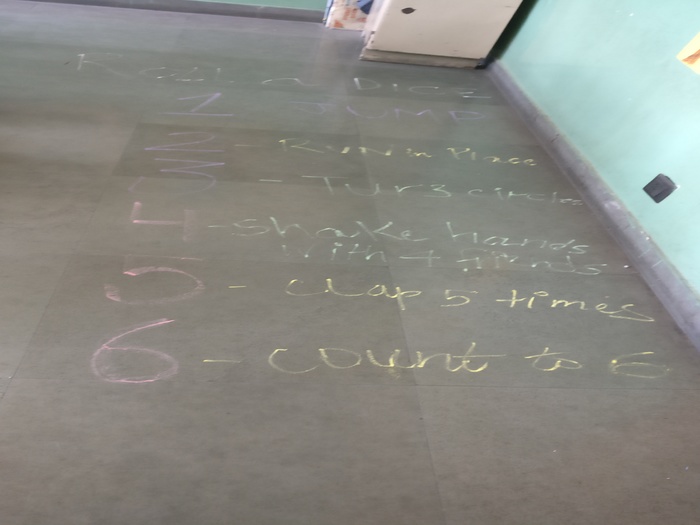 Roll a DICE
1 JUMP
2 - RUN in Place
3 - Tur 3 circles
4 - shake hands
with 4 friends
5 - clap 5 times
6 - count to 6